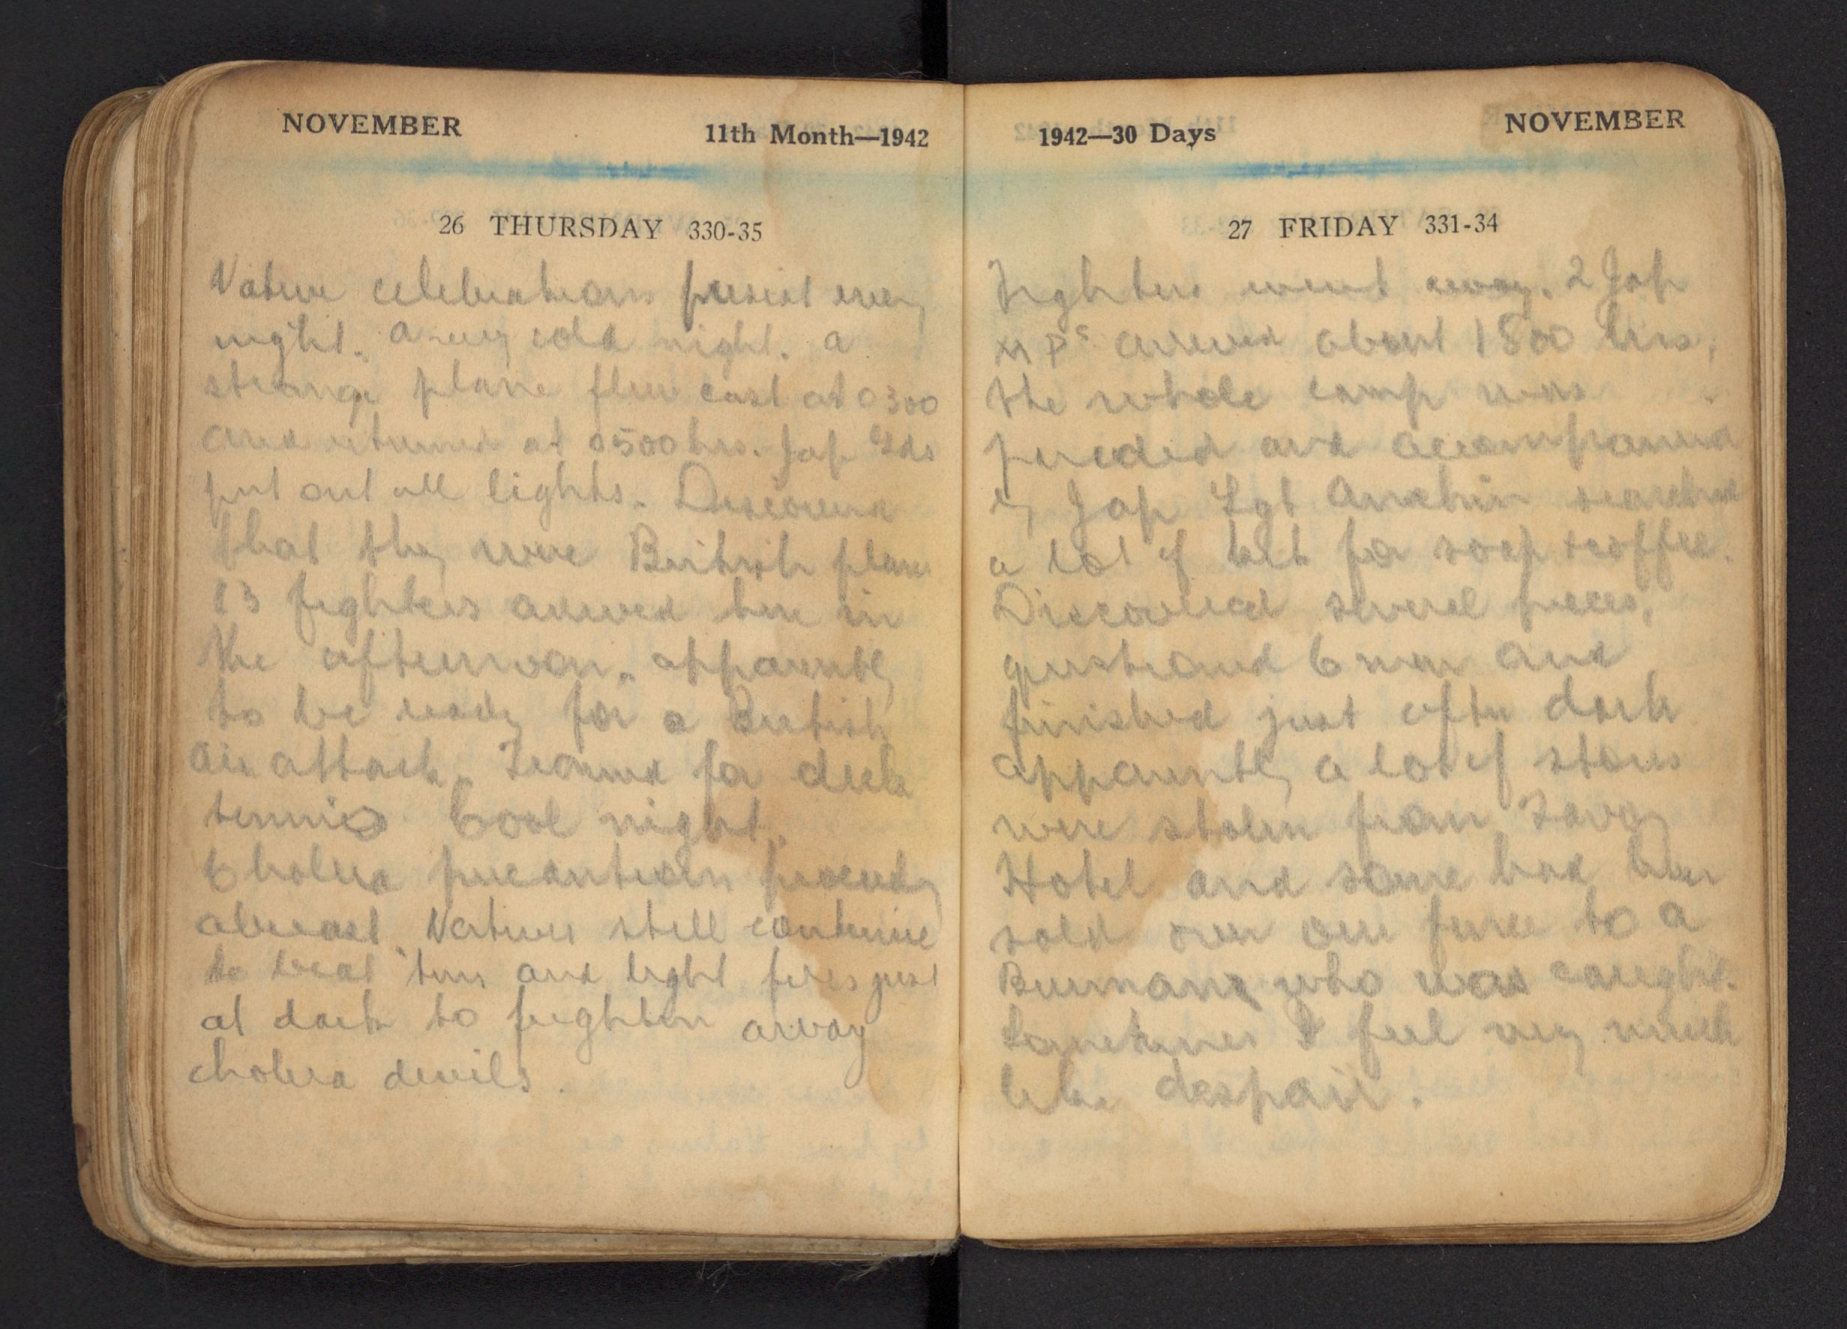 NOVEMBER 11th Month—1942
26 THURSDAY 330-35
Native celebrations persist every
night. A very cold night. A
strange plane flew east at 0300
and returned at 0500 hrs. Jap Gds
put out all lights. Discovered
that they were British planes
13 fighters arrived here in
the afternoon. apparently
to be ready for a British
air attack. Teamed for deck
tennis Cool night.
Cholera precautions
abreast. Natives still continue
to beat tins and light fires just
at dark to frighten away
cholera devils.
1942—30 Days NOVEMBER
27 FRIDAY 331-34
Fighters went away. 2 Jap
M Ps arrived about 1800 hrs,
the whole camp was
paraded and accompanied
by Jap Sgt searched
a lot of kit for soap & coffee.
Discovered several pieces,
questioned 6 men and
finished just after dark
apparently a lot of stores
were stolen from Tavoy
Hotel and some had been
sold over our fence to a
Burmans who was caught.
Sometimes I feel very much
like despair.